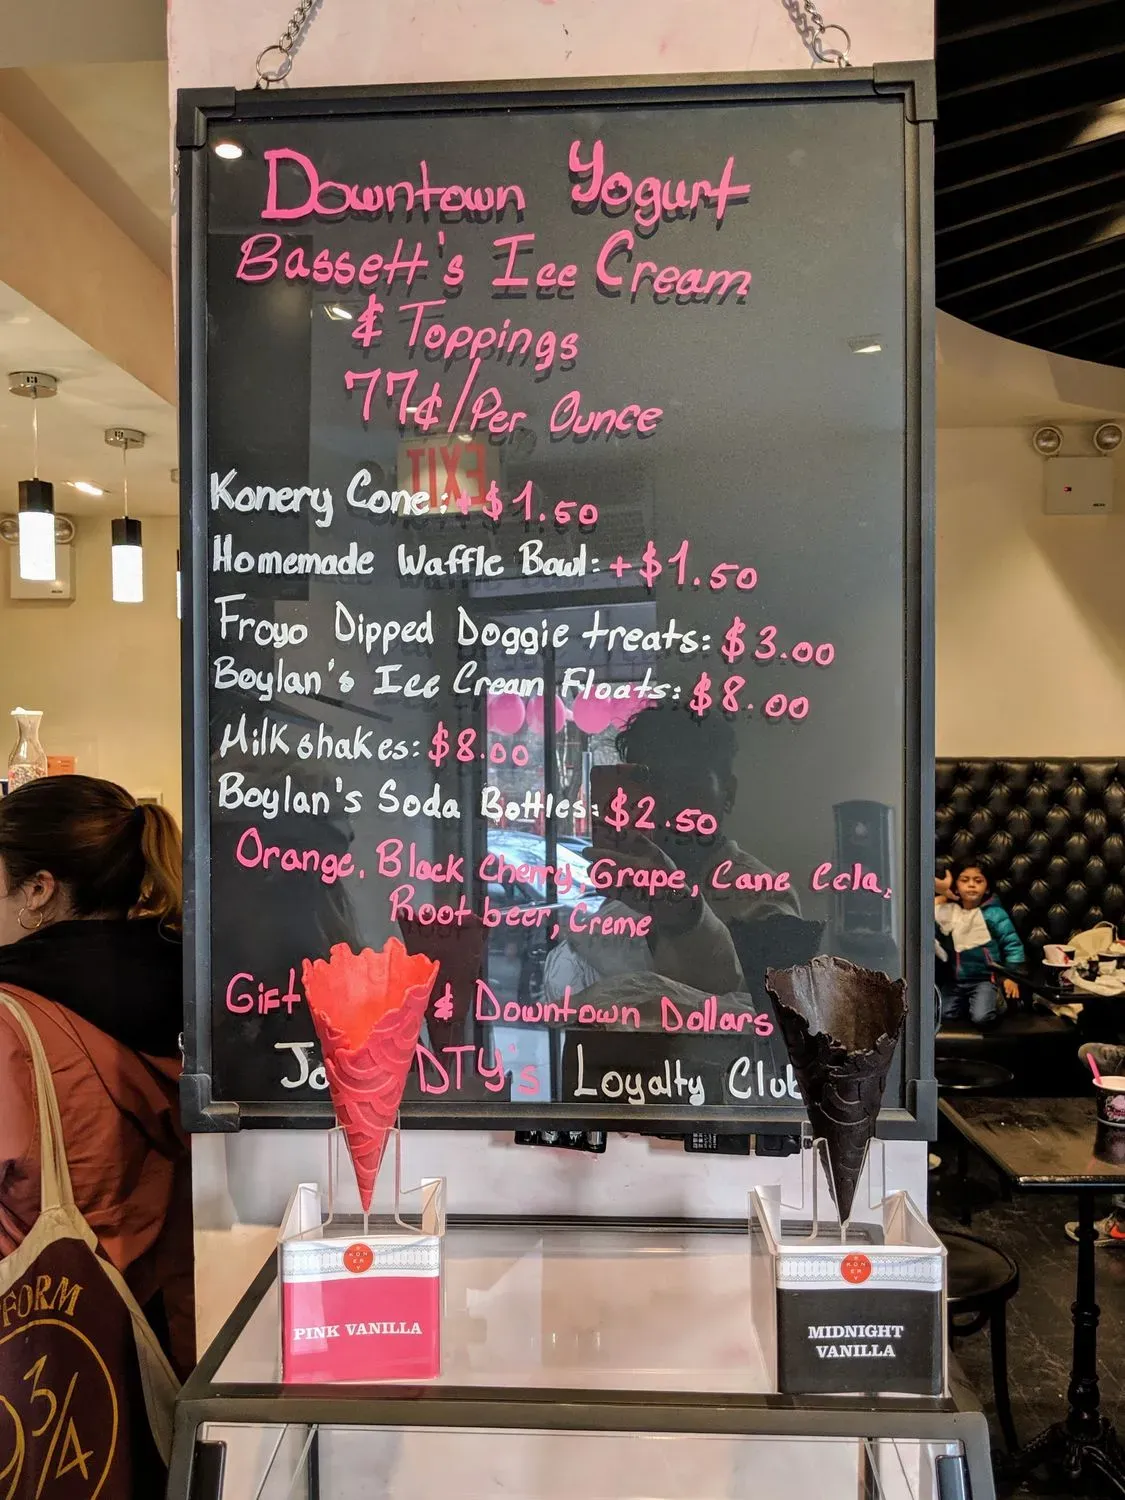 Downtown Yogurt
Bassett's Ice Cream
& Toppings
77¢/Per Ounce
EXIT
Konery Cone: +$1.50
Homemade Waffle Bowl: +$1.50
Froyo Dipped Doggie treats: $3.00
Boylan's Ice Cream Floats: $8.00
Milkshakes: $8.00
Boylan's Soda Bottles: $2.50
Orange, Black Cherry, Grape, Cane Cola,
Root beer, Creme
Gift & Downtown Dollars
Jo DTY's Loyalty Club
KONERY
KONERY
PINK VANILLA
MIDNIGHT
VANILLA
FORM
9 3/4